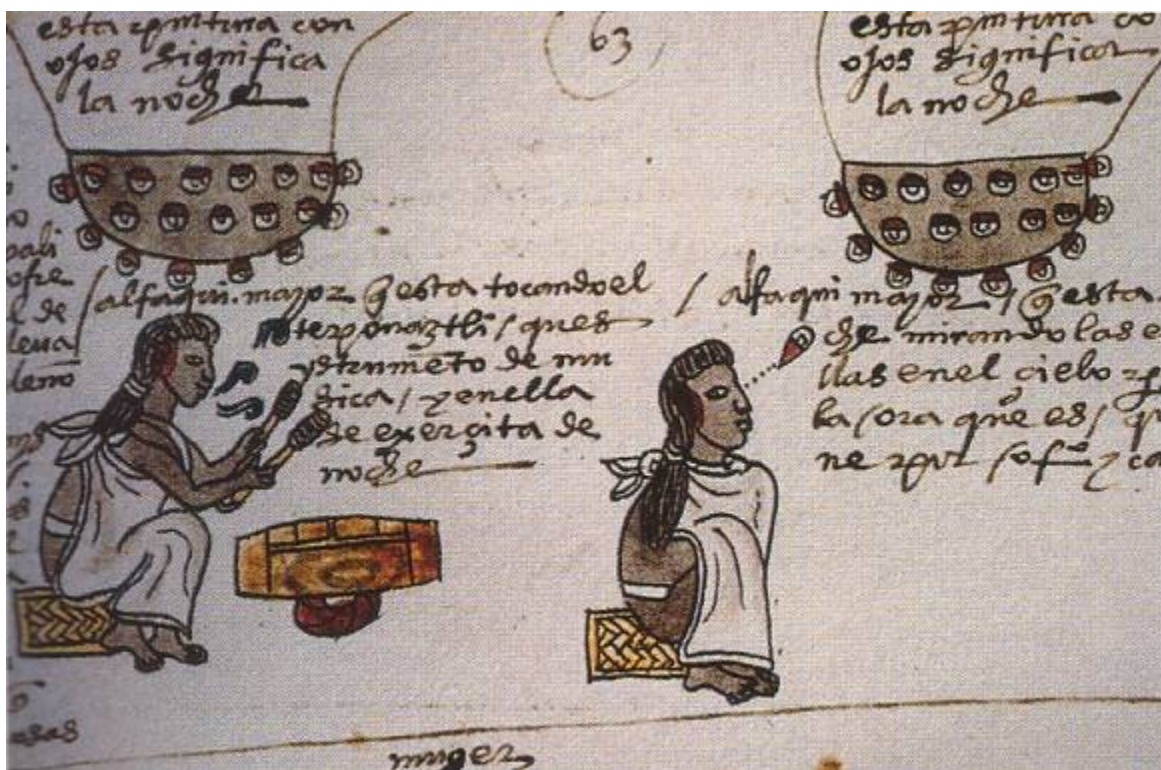 esta pintura con
ojos significa
la noche
63
esta pintura co
ojos significa
la noche
pali
ofre
l de
leva
leño
alfaqui mayor q̃ esta tocando el
teponaztli / ques
ystrumẽto de mu
sica / y en ella
se exerçita de
noche
/ alfaqui mayor / q̃ esta
che mirando las e
llas en el çielo
la ora que es / q
ne por
muger
asas